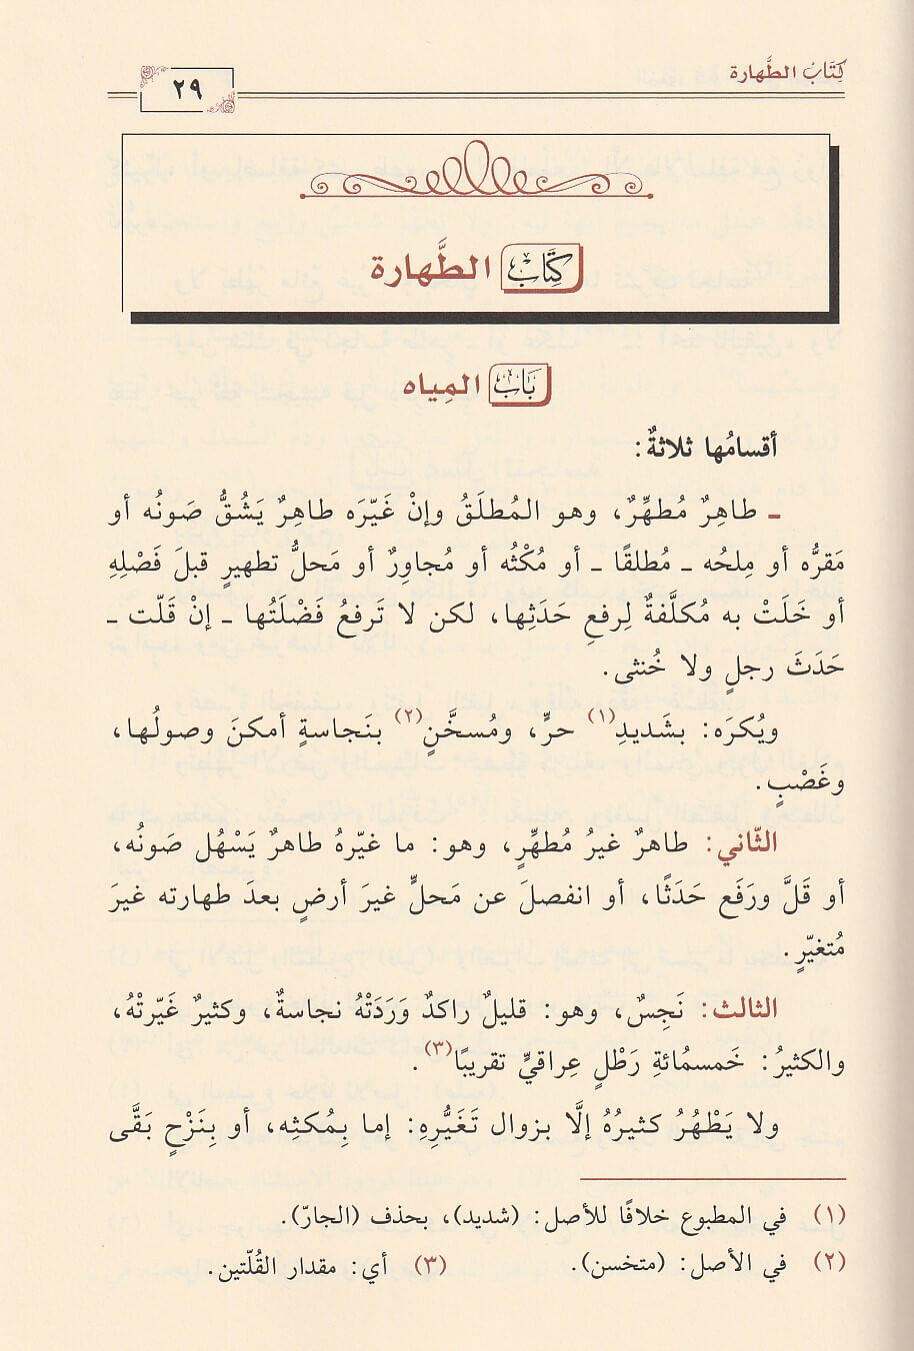 كِتَابُ الطَّهارة
٢٩
كِتَابُ الطَّهارة
بَابُ المِياه
أقسامُها ثلاثةٌ:
ـ طاهِرٌ مُطهِّرٌ، وهو المُطلَقُ وإنْ غَيّرَه طاهِرٌ يَشُقُّ صَونُه أو
مَقرُّه أو مِلحُه ـ مُطلقًا ـ أو مُكْثُه أو مُجاوِرٌ أو مَحلُّ تطهيرٍ قبلَ فَصْلِهِ
أو خَلَتْ به مُكلَّفةٌ لِرفعِ حَدَثِها، لكن لا تَرفعُ فَضْلَتُها ـ إنْ قَلّت ـ
حَدَثَ رجلٍ ولا خُنثى.
ويُكرَه: بشديدِ(١) حرٍّ، ومُسخَّنٍ(٢) بنَجاسةٍ أمكنَ وصولُها،
وغَصْبٍ.
الثّاني: طاهرٌ غيرُ مُطهِّرٍ، وهو: ما غيّرهُ طاهرٌ يَسْهُل صَونُه،
أو قَلَّ ورَفَع حَدَثًا، أو انفصلَ عن مَحلٍّ غيرَ أرضٍ بعدَ طهارته غيرَ
مُتغيّرٍ.
الثالث: نَجِسٌ، وهو: قليلٌ راكدٌ وَرَدَتْهُ نجاسةٌ، وكثيرٌ غَيّرتْهُ،
والكثيرُ: خَمسمُائةِ رَطْلٍ عِراقيٍّ تقريبًا(٣).
ولا يَطْهُرُ كثيرُهُ إلَّا بزوال تَغَيُّرِهِ: إما بِمُكثِه، أو بِنَزْحٍ بَقَّى
(١) في المطبوع خلافًا للأصل: (شديد)، بحذف (الجارّ).
(٢) في الأصل: (متخسن). (٣) أي: مقدار القُلّتين.